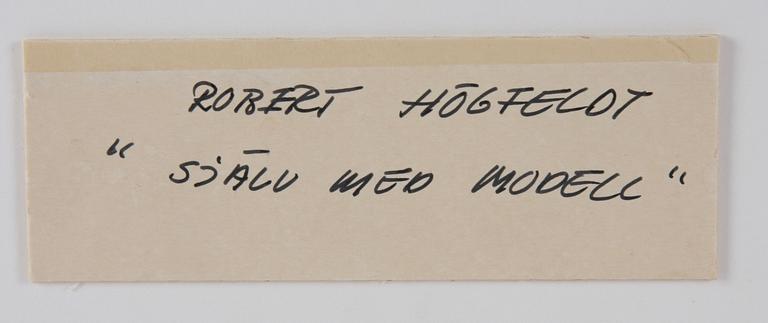 ROBERT HÖGFELDT
" SJÄLV MED MODELL "